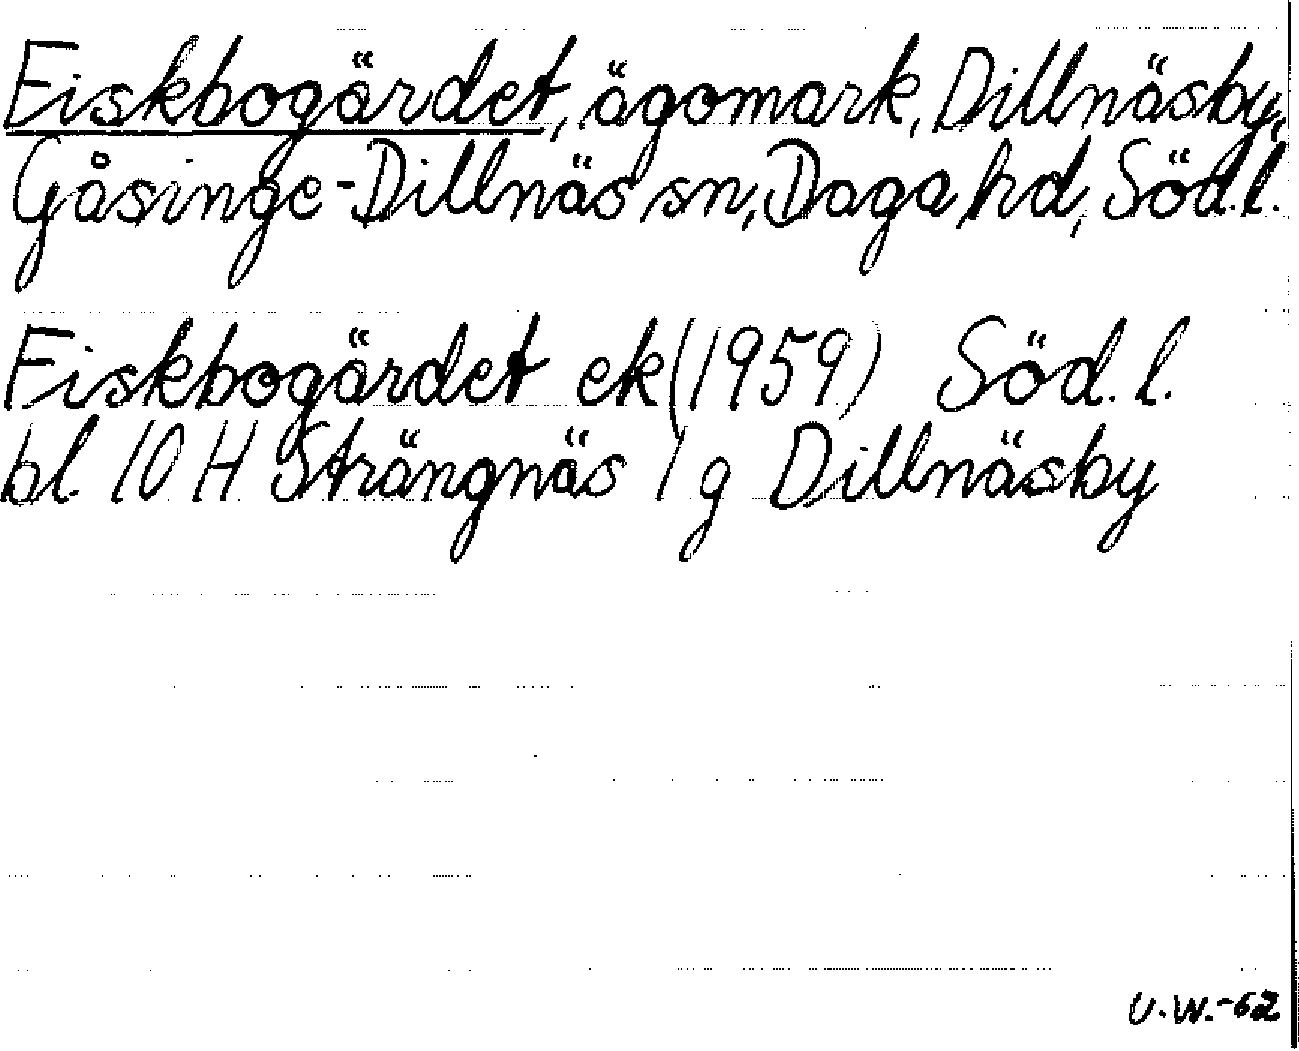 Fiskbogärdet, ägomark, Dillnäsby,
Gåsinge-Dillnäs sn, Daga hd, Söd.l.
Fiskbogärdet ek (1959) Söd. l.
bl 10 H Strängnäs 1 g Dillnäsby
U.W.-62